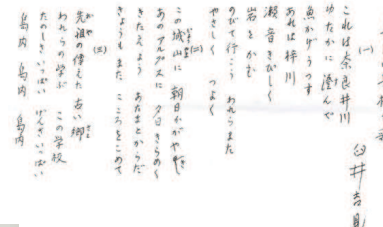 臼井吉見
(一)
これは奈良井川
ゆたかに澄んで
魚かげうつす
あれは梓川
瀬音きびしく
岩をかむ
のびて行こう われらまた
やさしく つよく
(二)
この城山に 朝日かがやき
あのアルプスに 夕日きらめく
きたえよう あたまとからだ
きょうもまた こころをこめて
(三)
先祖の傳えた古い郷
われらの学ぶ この学校
たのしさいっぱい げんきいっぱい
島内 島内 島内